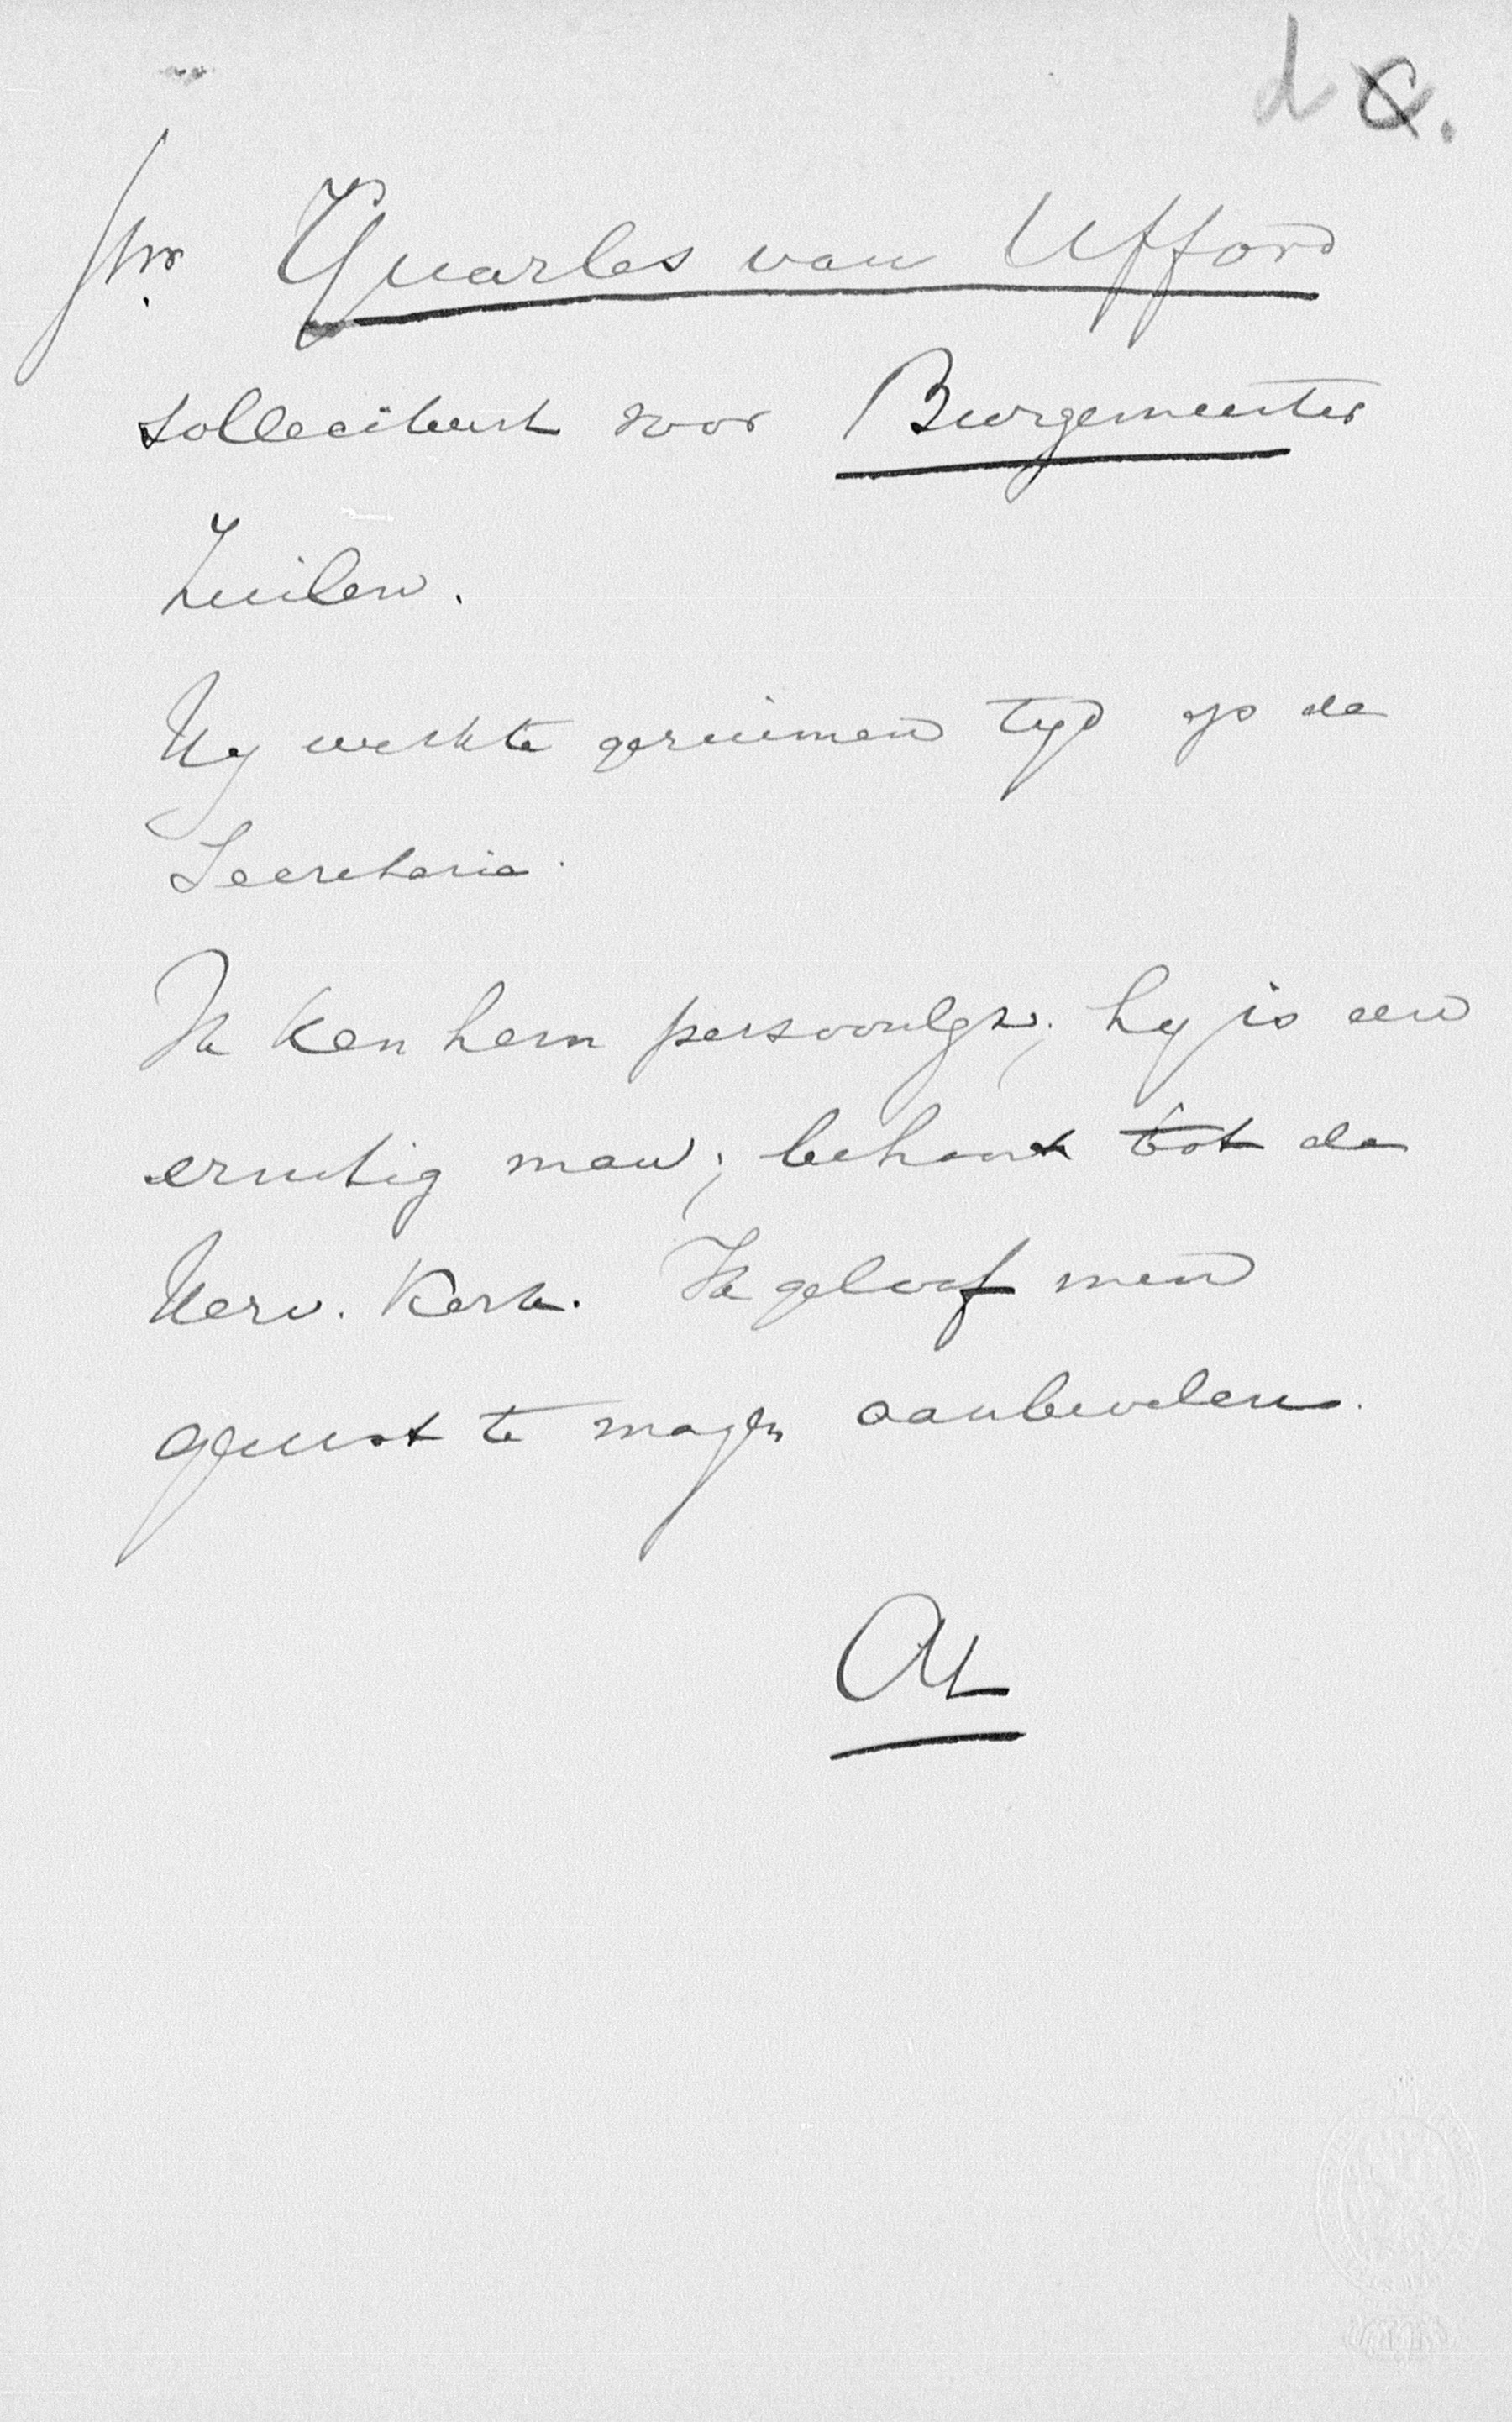 d
Jhr. Quarles van Ufford
solliciteert voor Burgemeester
Zuilen.
Hy werkte geruimen tyd op de
Secretarie.
Ik ken hem persoonlyk; hy is een
ernstig man; behoort tot de
Herv. Kerk. Ik geloof men
gerust te mogen aanbevelen.